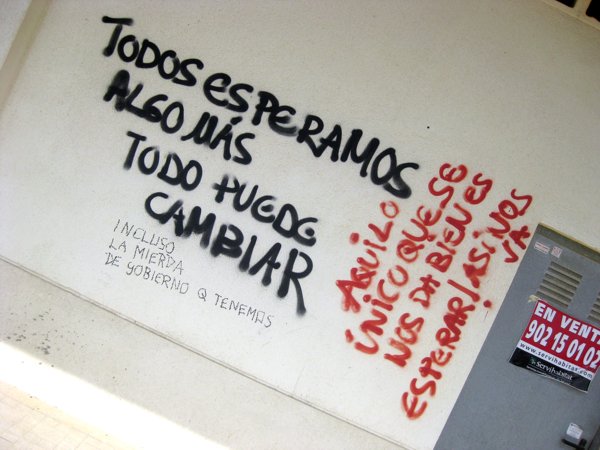 TODOS ESPERAMOS
ALGO MÁS
TODO PUEDE
CAMBIAR
INCLUSO
LA MIERDA
DE GOBIERNO Q TENEMOS
AQUI LO
ÚNICO QUE SE
NOS DA BIEN ES
ESPERAR ¡ASI NOS
VA!
EN VENTA
902 15 01 02
www.servihabitat.com
Servihabitat